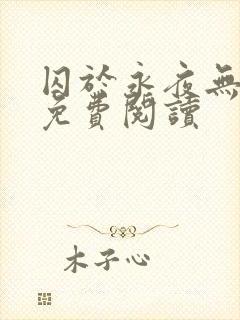 囚於永夜無
免費閱讀
木子心